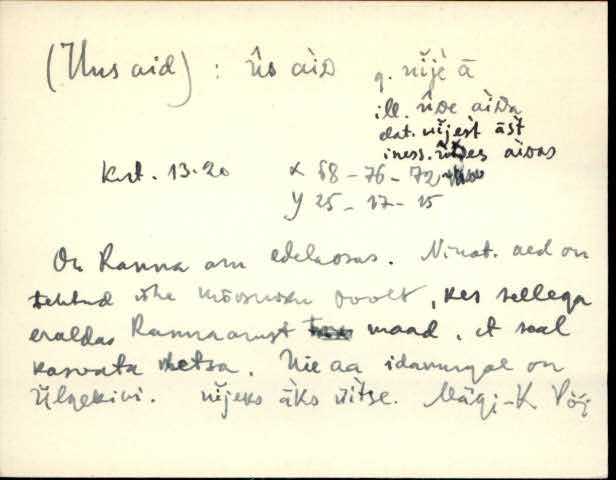 (Uus aid) : ūs àiD g. ūi̯jè ā
ill. ūDe àiDa
elat. ūijest āśt
iness. ūDes àiDas
Krt. 13.20 X 68 - 76 - 72
Y 25 - 17 - 15
On Ranna aru edelaosas. Nimet. aed on
tehtud ühe mõisniku poolt, kes sellega
eraldas Rannaarust maad, et seal
kasvata metsa. Uie aa idanurgal on
Ülgekivi. Mägi-K